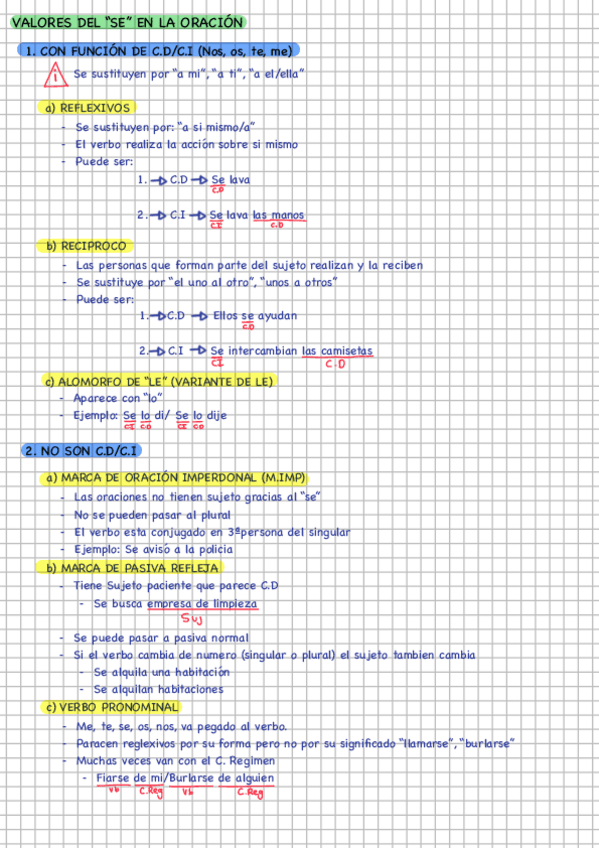 VALORES DEL "SE" EN LA ORACIÓN
1. CON FUNCIÓN DE C.D/C.I (Nos, os, te, me)
Se sustituyen por "a mi", "a ti", "a el/ella"
a) REFLEXIVOS
- Se sustituyen por: "a si mismo/a"
- El verbo realiza la acción sobre si mismo
- Puede ser:
1. → C.D → Se lava
CD
2. → C.I → Se lava las manos
CI C.D
b) RECIPROCO
- Las personas que forman parte del sujeto realizan y la reciben
- Se sustituye por "el uno al otro", "unos a otros"
- Puede ser:
1. → C.D → Ellos se ayudan
CD
2. → C.I → Se intercambian las camisetas
CI C.D
c) ALOMORFO DE "LE" (VARIANTE DE LE)
- Aparece con "lo"
- Ejemplo: Se lo di/ Se lo dije
CI CD CI CD
2. NO SON C.D/C.I
a) MARCA DE ORACIÓN IMPERDONAL (M.IMP)
- Las oraciones no tienen sujeto gracias al "se"
- No se pueden pasar al plural
- El verbo esta conjugado en 3ªpersona del singular
- Ejemplo: Se avisó a la policia
b) MARCA DE PASIVA REFLEJA
- Tiene Sujeto paciente que parece C.D
- Se busca empresa de limpieza
Suj
- Se puede pasar a pasiva normal
- Si el verbo cambia de numero (singular o plural) el sujeto tambien cambia
- Se alquila una habitación
- Se alquilan habitaciones
c) VERBO PRONOMINAL
- Me, te, se, os, nos, va pegado al verbo.
- Paracen reglexivos por su forma pero no por su significado "llamarse", "burlarse"
- Muchas veces van con el C. Regimen
- Fiarse de mi/Burlarse de alguien
Vb C.Reg Vb C.Reg